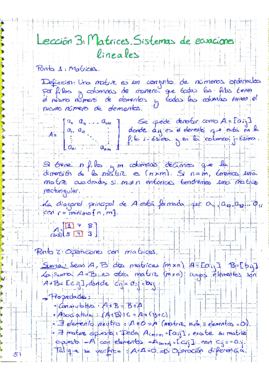 Lección 3: Matrices. Sistemas de ecuaciones
lineales
Punto 1: Matrices.
Definición: Una matriz es un conjunto de números ordenados
por filas y columnas de manera que todas las filas tienen
el mismo número de elementos y todas las columnas tienen el
mismo número de elementos.
Se puede denotar como A=[aij]
donde aij es el elemento que está en la
fila i-ésima y en la columna j-ésima.
A=
Si tiene n filas y m columnas, decimos que la
dimensión de la matriz es (n×m). Si n=m, tenemos una
matriz cuadrada; si m≠n entonces tendremos una matriz
rectangular.
La diagonal principal de A está formada por a11, a22, a33... arr
con r = mínimo {n, m}.
Punto 2: Operaciones con matrices.
Suma: Sean A, B dos matrices (m×n) A=[aij] B=[bij]
La suma A+B es otra matriz (m×n) cuyos elementos son
A+B=[cij], donde cij = aij + bij
→ Propiedades:
- Conmutativa: A+B = B+A
- Asociativa: (A+B)+C = A+(B+C)
- ∃ elemento neutro: A+0=A (matriz nula = elementos=0).
- ∃ matriz opuesta: Dada A existe su matriz
opuesta -A con elementos -A = [cij] con cij = -aij.
Tal que se verifica: A+(-A)=0 ⇒ Operación diferencia.